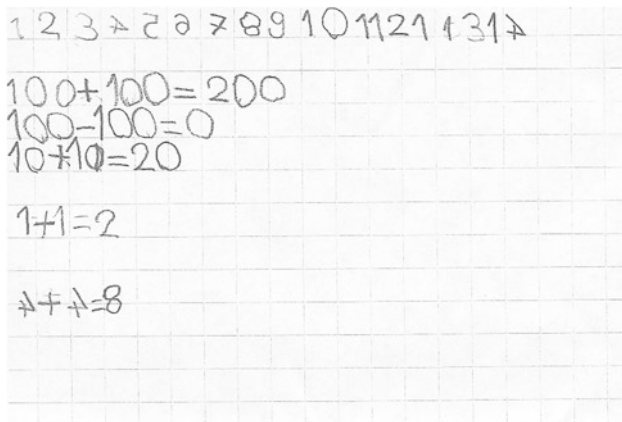 1 2 3 4 5 6 7 8 9 10 11 21 1314
100+100=200
100-100=0
10+10=20
1+1=2
4+4=8